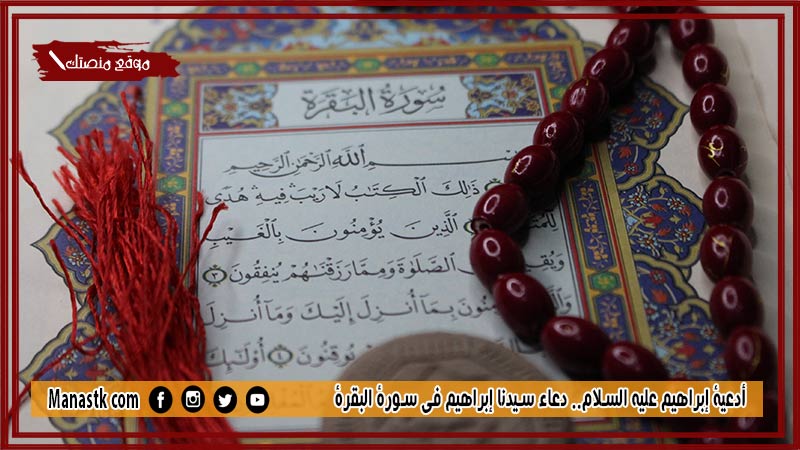 موقع منصتك
سُورَةُ البَقَرَةِ
بِسْمِ اللَّهِ الرَّحْمَٰنِ الرَّحِيمِ
ذَٰلِكَ الْكِتَٰبُ لَا رَيْبَ فِيهِ هُدًى
الَّذِينَ يُؤْمِنُونَ بِالْغَيْبِ
الصَّلَوٰةَ وَمِمَّا رَزَقْنَٰهُمْ يُنفِقُونَ ٣
بِمَا أُنزِلَ إِلَيْكَ وَمَا أُنزِلَ
يُوقِنُونَ ٤ أُوْلَٰئِكَ
أدعية إبراهيم عليه السلام.. دعاء سيدنا إبراهيم في سورة البقرة
Manastk com